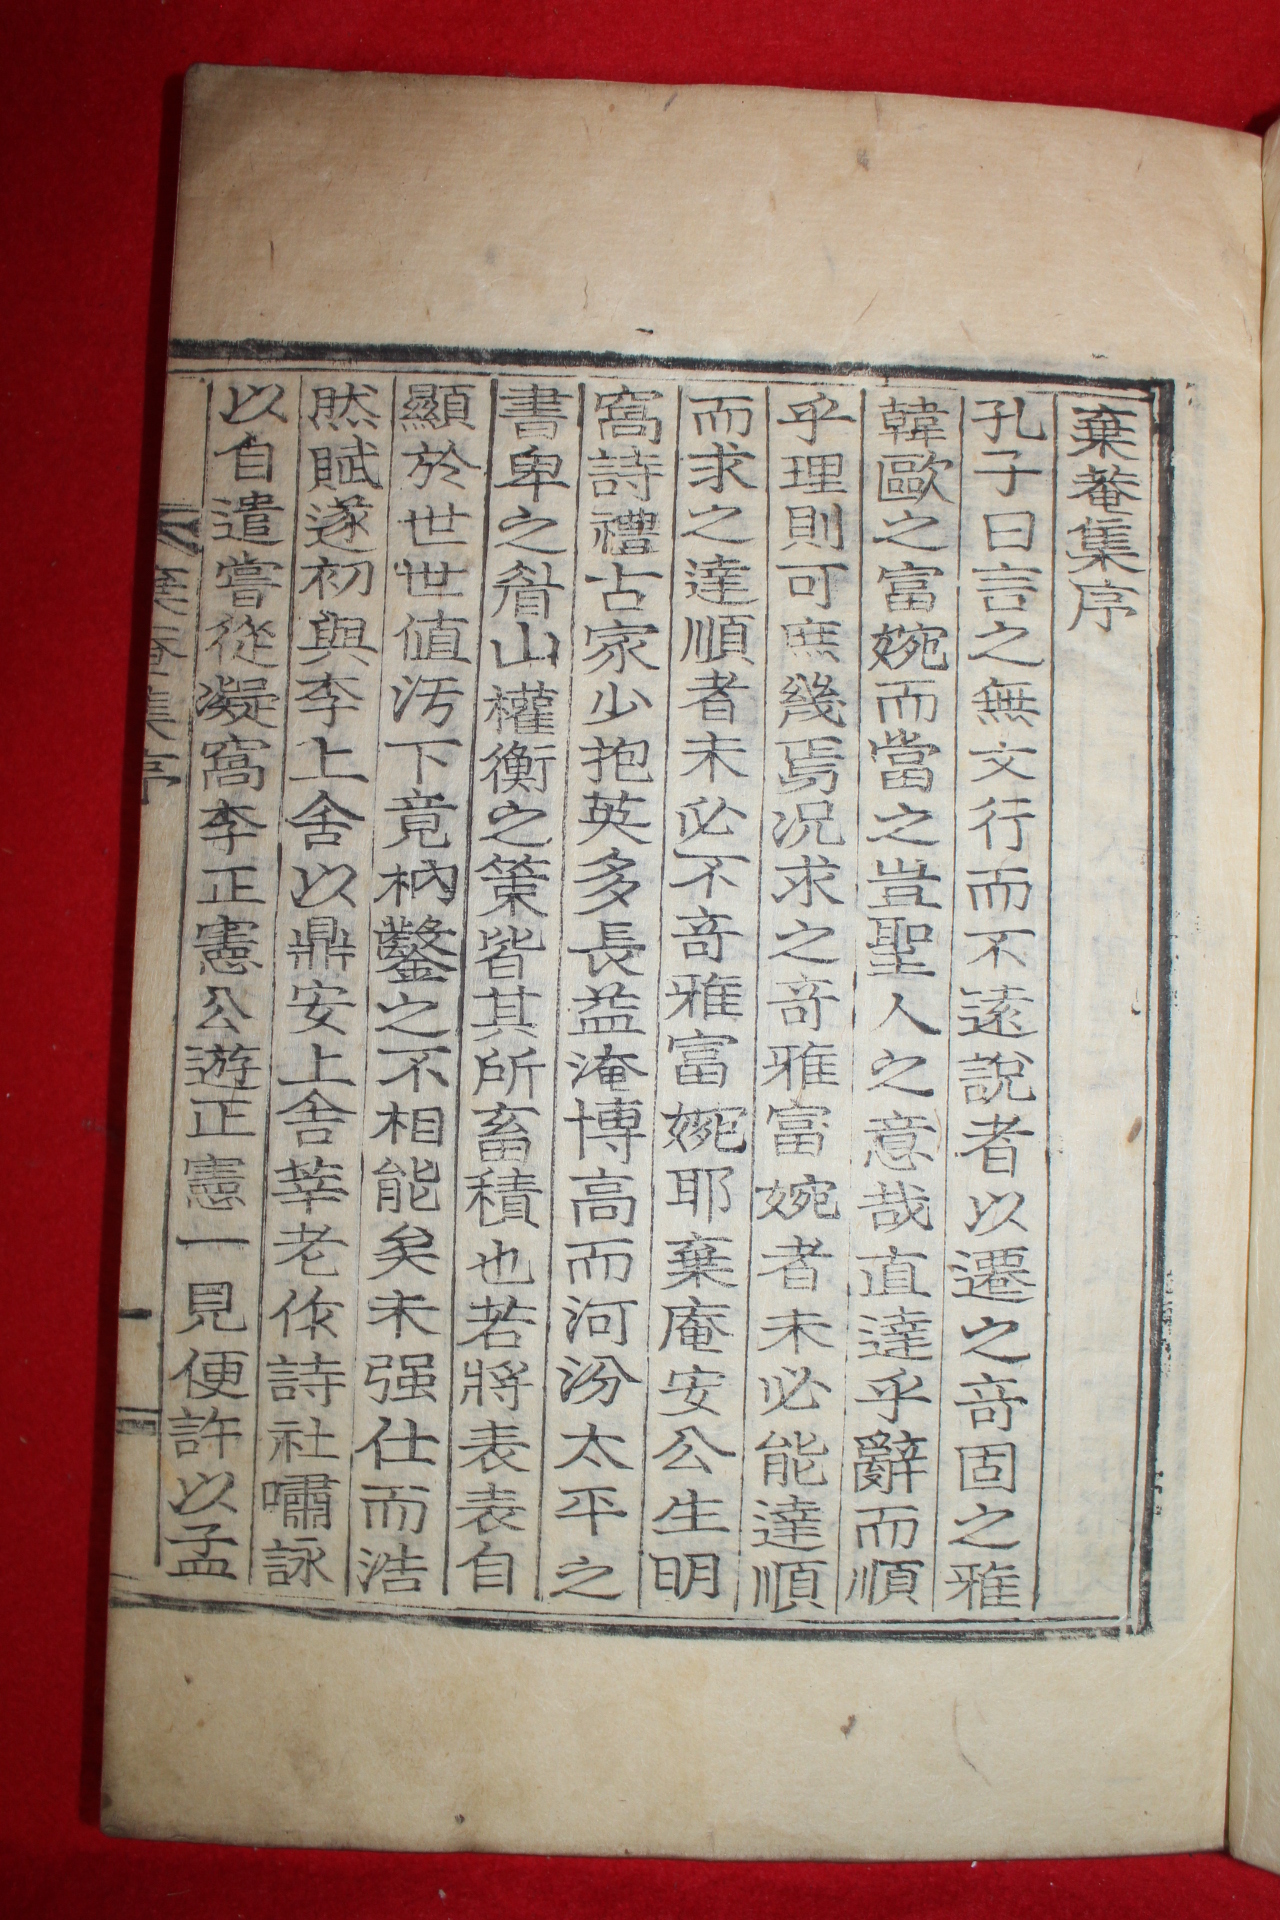 棄菴集序
孔子曰言之無文行而不遠說者以遷之奇固之雅
韓歐之富婉而當之豈聖人之意哉直達乎辭而順
乎理則可庶幾焉况求之奇雅富婉者未必能達順
而求之達順者未必不奇雅富婉耶棄庵安公生明
窩詩禮古家少抱英多長益淹博高而河汾太平之
書卑之眉山權衡之策皆其所畜積也若將表表自
顯於世世値汚下竟枘鑿之不相能矣未强仕而浩
然賦遂初與李上舍以鼎安上舍莘老作詩社嘯詠
以自遣嘗從凝窩李正憲公遊正憲一見便許以孟
棄菴集序
一